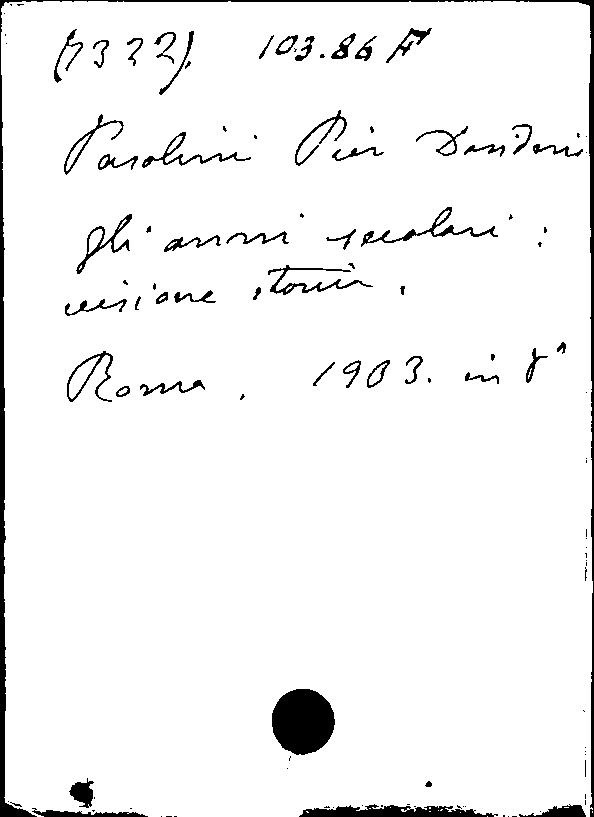 (7322). 103.86 F
Pasolini Pier Desideri
gli anni secolari :
visione storia.
Roma. 1903. in 8°